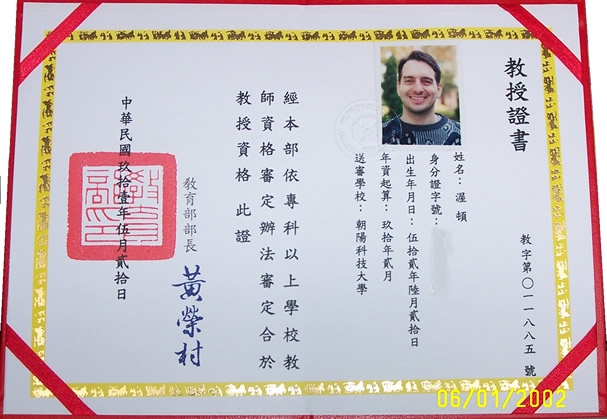 教授證書
教字第〇一一八八五號
姓名：渥頓
身分證字號：
出生年月日：伍拾貳年陸月貳拾日
年資起算：玖拾年貳月
送審學校：朝陽科技大學
經本部依專科以上學校教
師資格審定辦法審定合於
教授資格 此證
教育部部長
黃榮村
中華民國玖拾壹年伍月貳拾日
06/01/2002